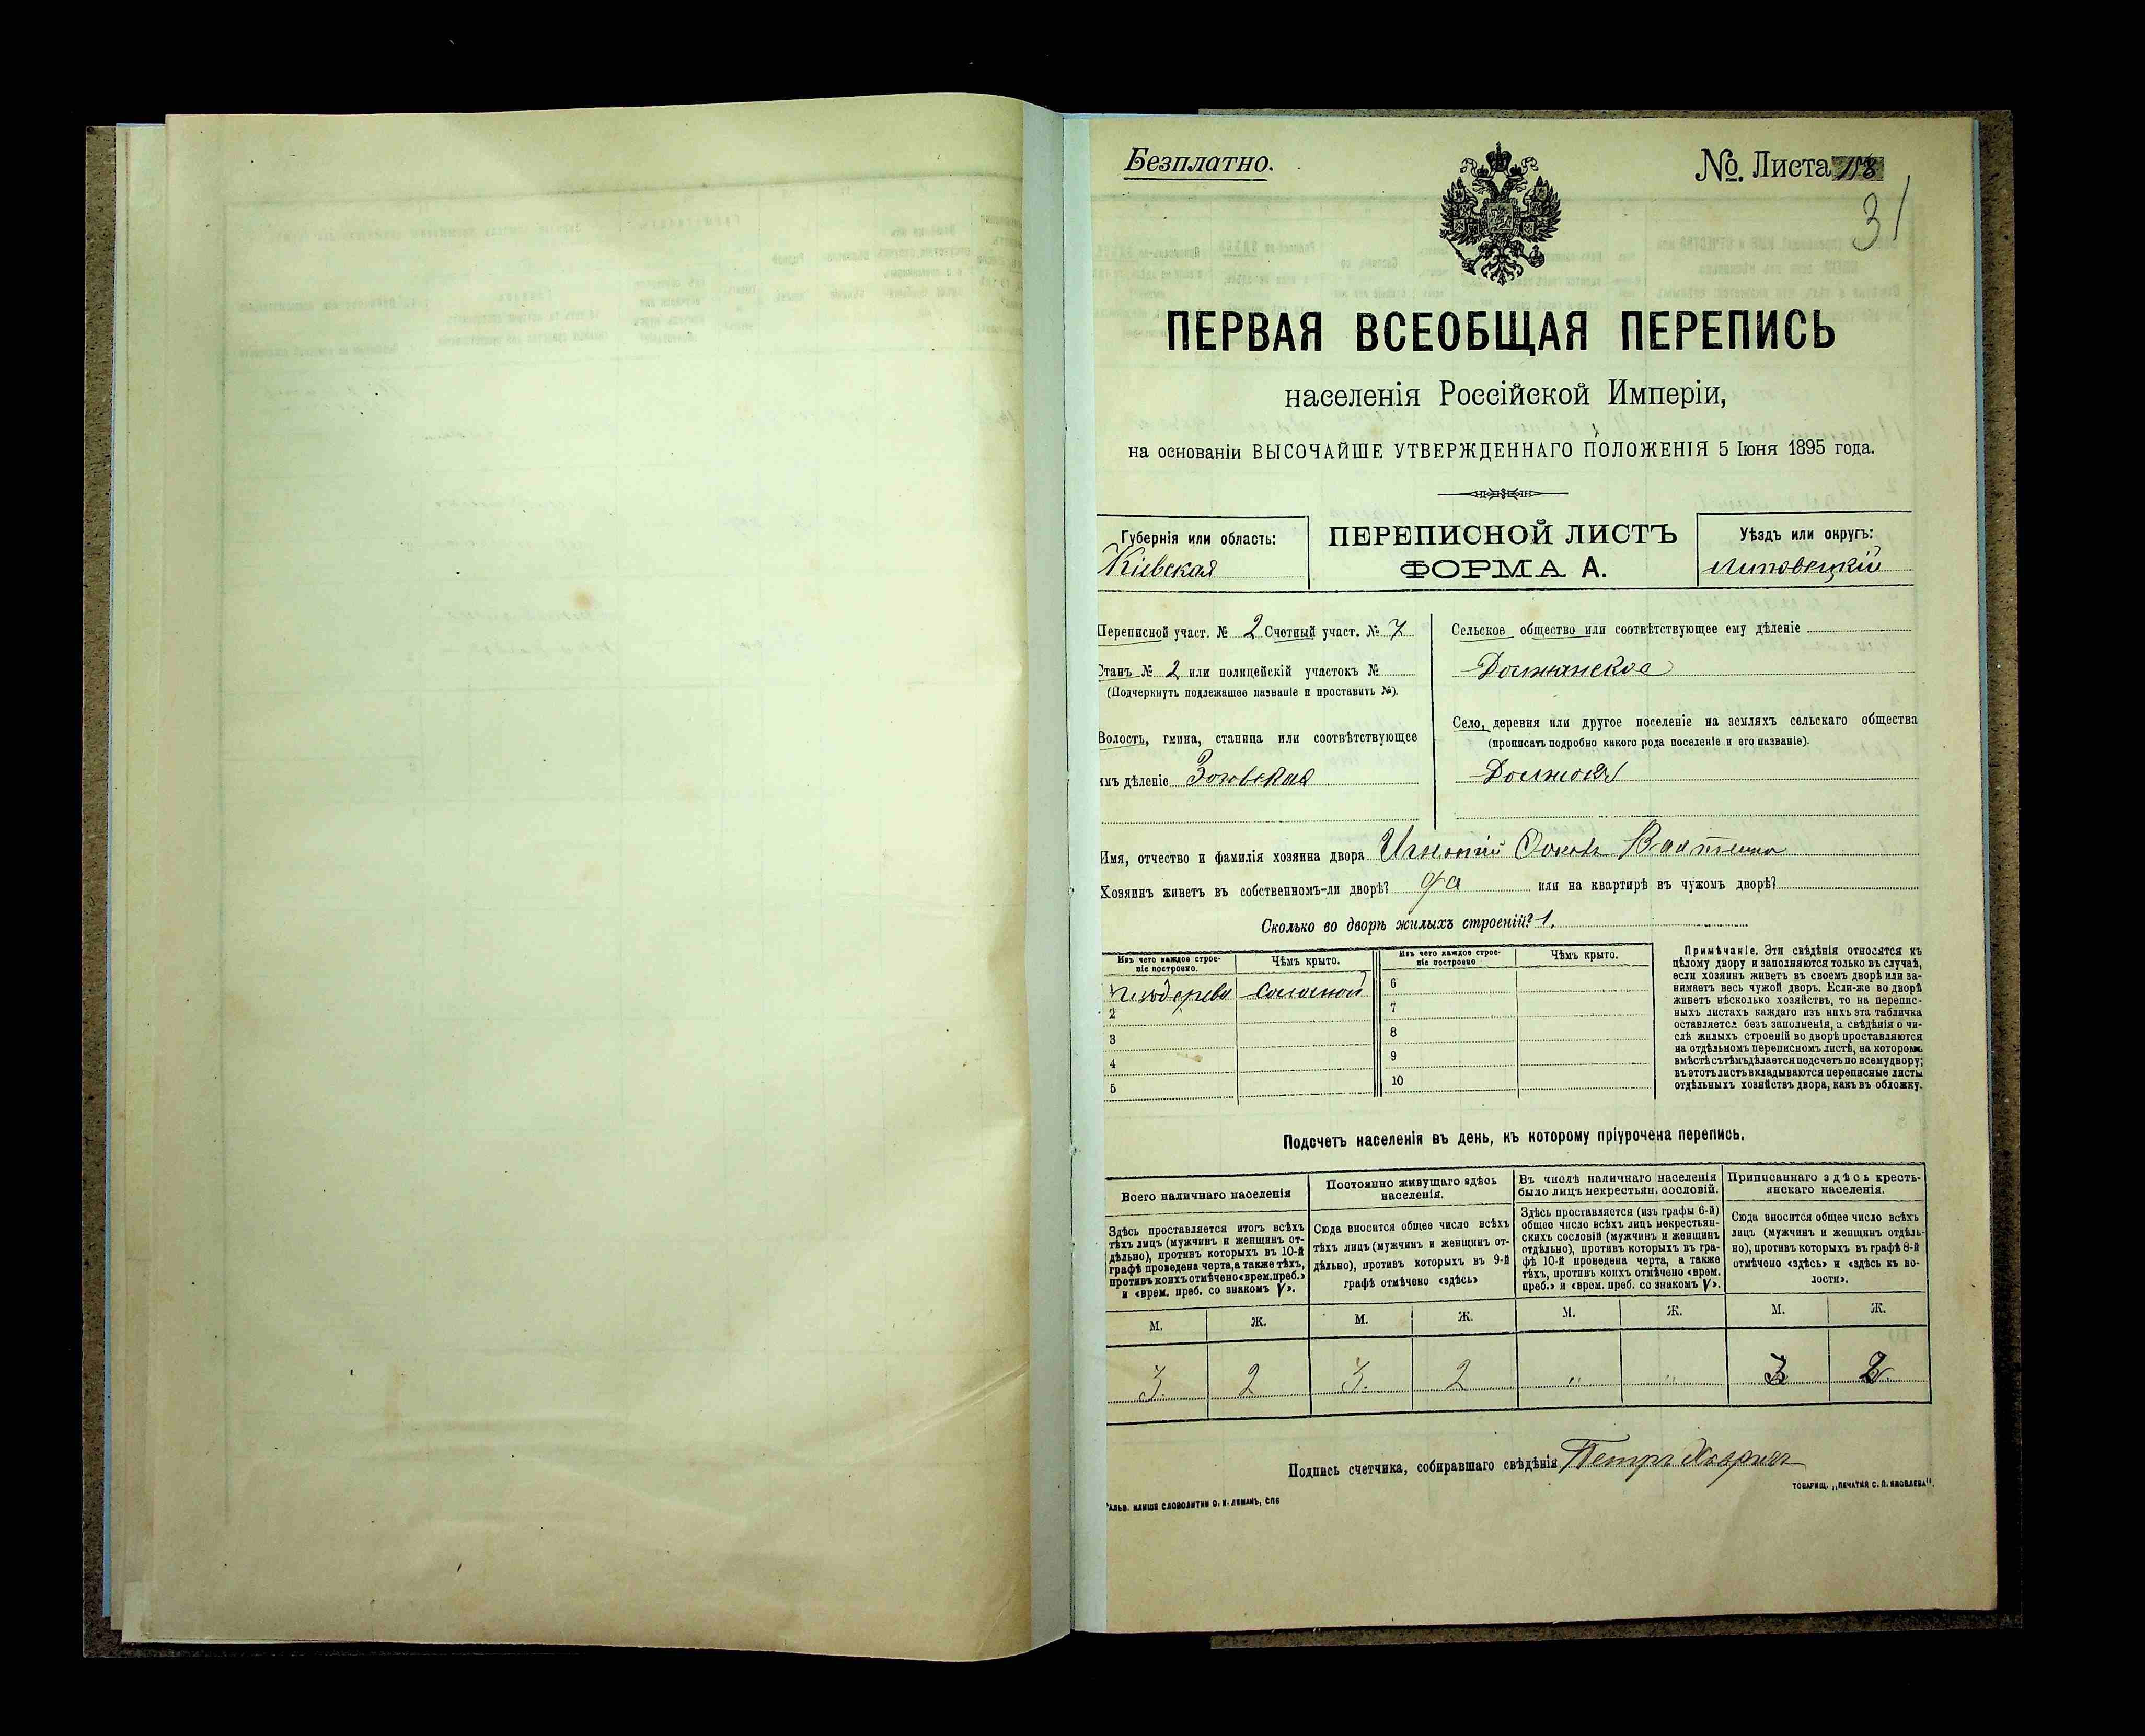 Безплатно.
№. Листа 118
31
ПЕРВАЯ ВСЕОБЩАЯ ПЕРЕПИСЬ
населенія Россійской Имперіи,
на основаніи ВЫСОЧАЙШЕ УТВЕРЖДЕННАГО ПОЛОЖЕНІЯ 5 Іюня 1895 года.
Губернія или область:
Кіевская
ПЕРЕПИСНОЙ ЛИСТЪ
ФОРМА А.
Уѣздъ или округъ:
Липовецкій
Переписной участ. № 2 Счетный участ. № 7
Станъ № 2 или полицейскій участокъ №
(Подчеркнуть подлежащее названіе и проставить №).
Волость, гмина, станица или соотвѣтствующее
имъ дѣленіе Зозовская
Сельское общество или соотвѣтствующее ему дѣленіе
Должанское
Село, деревня или другое поселеніе на земляхъ сельскаго общества
(прописать подробно какого рода поселеніе и его названіе).
Должокъ
Имя, отчество и фамилія хозяина двора Игнатій
Хозяинъ живетъ въ собственномъ-ли дворѣ? да или на квартирѣ въ чужомъ дворѣ?
Сколько во дворѣ жилыхъ строеній? 1.
Изъ чего каждое строе-
ніе построено.
Чѣмъ крыто.
Изъ чего каждое строе-
ніе построено
Чѣмъ крыто.
1 изъ дерева соломой
2
3
4
5
6
7
8
9
10
Примѣчаніе. Эти свѣдѣнія относятся къ
цѣлому двору и заполняются только въ случаѣ,
если хозяинъ живетъ въ своемъ дворѣ или за-
нимаетъ весь чужой дворъ. Если-же во дворѣ
живетъ нѣсколько хозяйствъ, то на перепис-
ныхъ листахъ каждаго изъ нихъ эта табличка
оставляется безъ заполненія, а свѣдѣнія о чи-
слѣ жилыхъ строеній во дворѣ проставляются
на отдѣльномъ переписномъ листѣ, на которомъ
вмѣстѣ съ тѣмъ дѣлается подсчетъ по всему двору;
въ этотъ листъ вкладываются переписные листы
отдѣльныхъ хозяйствъ двора, какъ въ обложку.
Подсчетъ населенія въ день, къ которому пріурочена перепись.
Всего наличнаго населенія
Здѣсь проставляется итогъ всѣхъ
тѣхъ лицъ (мужчинъ и женщинъ от-
дѣльно), противъ которыхъ въ 10-й
графѣ проведена черта, а также тѣхъ,
противъ коихъ отмѣчено «врем. преб.»
и «врем. преб. со знакомъ V».
Постоянно живущаго здѣсь
населенія.
Сюда вносится общее число всѣхъ
тѣхъ лицъ (мужчинъ и женщинъ от-
дѣльно), противъ которыхъ въ 9-й
графѣ отмѣчено «здѣсь»
Въ числѣ наличнаго населенія
было лицъ некрестьян. сословій.
Здѣсь проставляется (изъ графы 6-й)
общее число всѣхъ лицъ некрестьян-
скихъ сословій (мужчинъ и женщинъ
отдѣльно), противъ которыхъ въ гра-
фѣ 10-й проведена черта, а также
тѣхъ, противъ коихъ отмѣчено «врем.
преб.» и «врем. преб. со знакомъ V».
Приписаннаго здѣсь кресть-
янскаго населенія.
Сюда вносится общее число всѣхъ
лицъ (мужчинъ и женщинъ отдѣль-
но), противъ которыхъ въ графѣ 8-й
отмѣчено «здѣсь» и «здѣсь къ во-
лости».
М. Ж. М. Ж. М. Ж. М. Ж.
3. 2 3. 2 " " 3 2
Подпись счетчика, собиравшаго свѣдѣнія Петръ
ГАЛЬВ. КЛИШЕ СЛОВОЛИТНИ О. И. ЛЕМАНЪ, СПБ
ТОВАРИЩ. „ПЕЧАТНЯ С. П. ЯКОВЛЕВА".